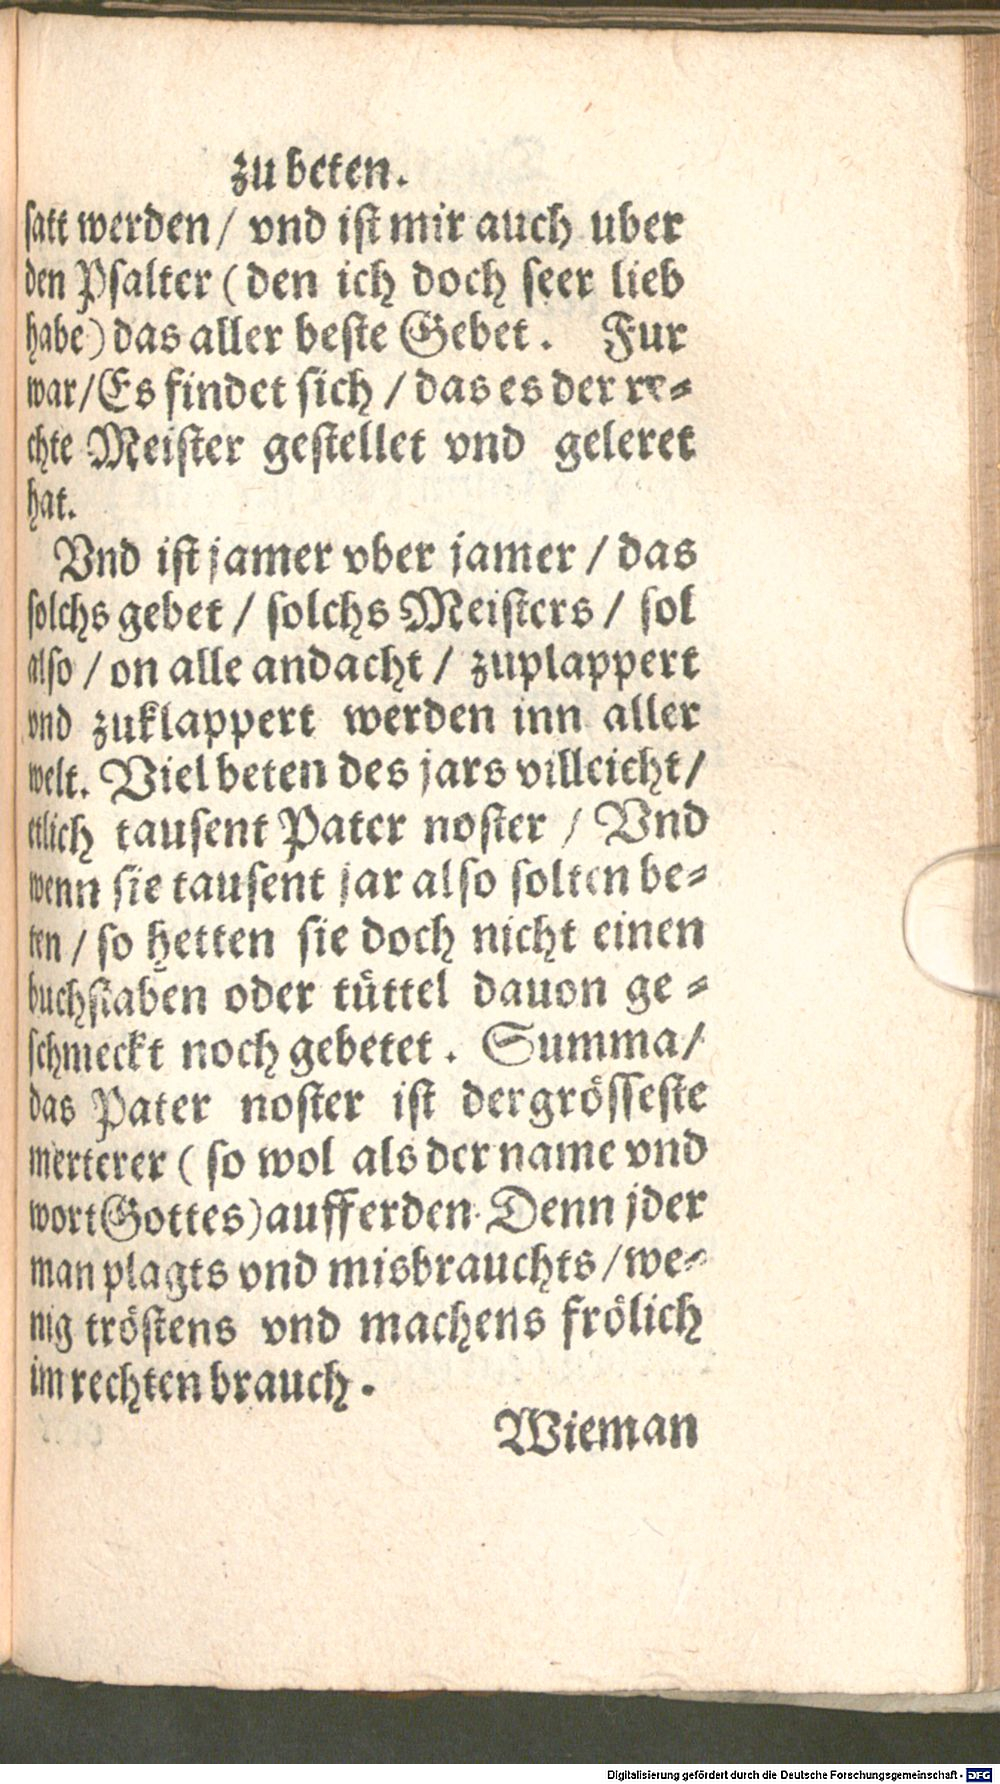 zu beten.
satt werden / vnd ist mir auch uber
den Psalter (den ich doch seer lieb
habe) das aller beste Gebet. Fur
war / Es findet sich / das es der re-
chte Meister gestellet vnd geleret
hat.
Vnd ist jamer vber jamer / das
solchs gebet / solchs Meisters / sol
also / on alle andacht / zuplappert
vnd zuklappert werden inn aller
welt. Viel beten des jars villeicht /
etlich tausent Pater noster / Vnd
wenn sie tausent jar also solten be-
ten / so hetten sie doch nicht einen
buchstaben oder tüttel dauon ge-
schmeckt noch gebetet. Summa /
das Pater noster ist der grösseste
merterer (so wol als der name vnd
wort Gottes) auff erden. Denn jder
man plagts vnd misbrauchts / we-
nig tröstens vnd machens frölich
im rechten brauch.
Wie man
Digitalisierung gefördert durch die Deutsche Forschungsgemeinschaft - DFG